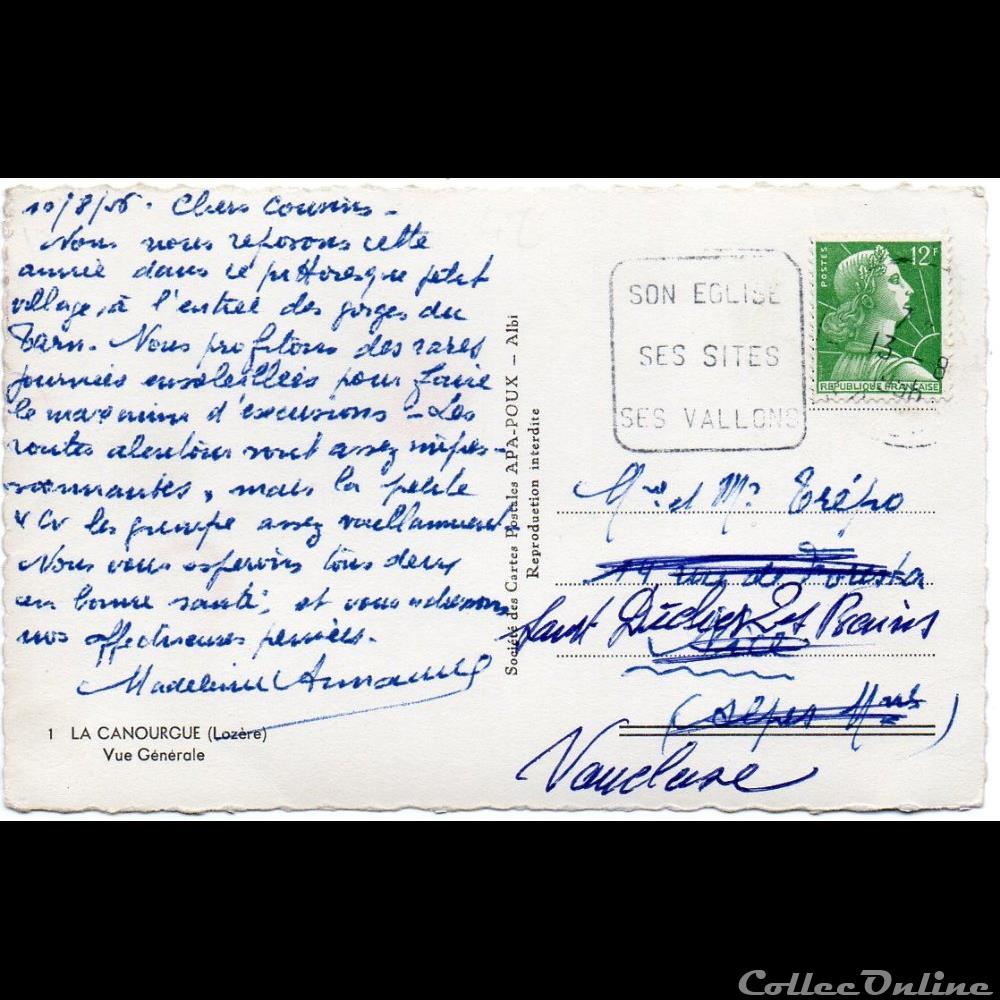 10/8/56. Chers Cousins -
Nous nous reposons cette
année dans ce pittoresque petit
village, à l'entrée des gorges du
Tarn. Nous profitons des rares
journées ensoleillées pour faire
le maximum d'excursions - Les
routes alentour sont assez impres-
sionnantes, mais la petite
4 CV les grimpe assez vaillamment
Nous vous espérons tous deux
en bonne santé, et vous adressons
nos affectueuses pensées.
Madeleine
1 LA CANOURGUE (Lozère)
Vue Générale
Société des Cartes Postales APA-POUX - Albi
Reproduction interdite
SON EGLISE
SES SITES
SES VALLONS
POSTES 12F
REPUBLIQUE FRANÇAISE
13 - 8
Mme et Mr Trépo
14 rue de Foresta
Saint Didier Les Bains
Nice
(Alpes Mmes)
Vaucluse
CollecOnline